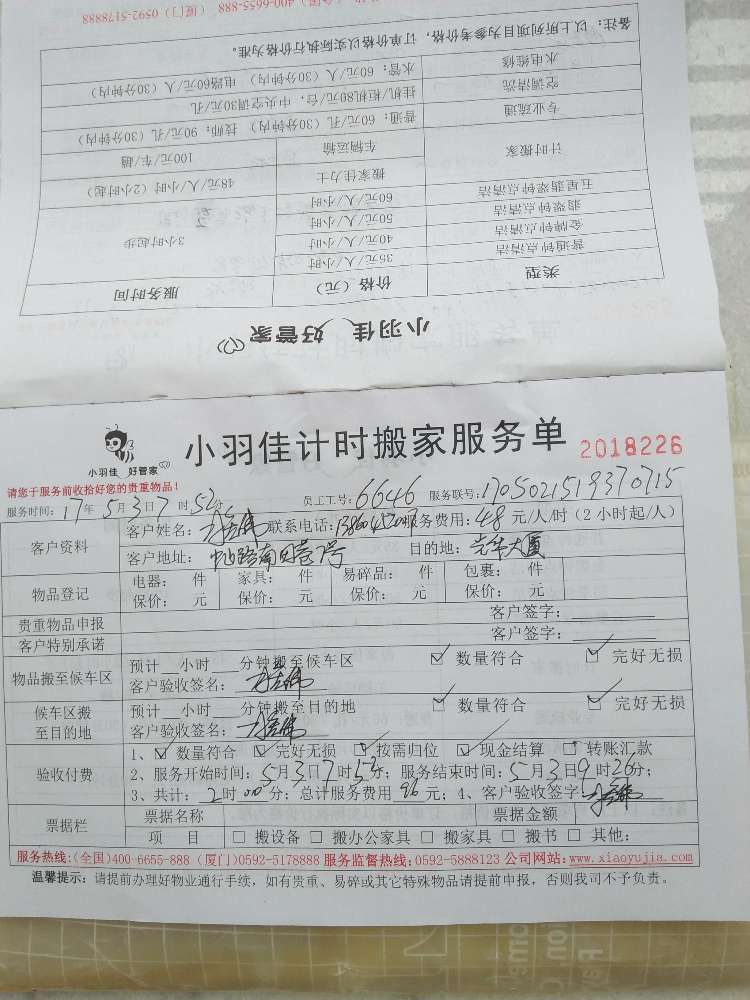 小羽佳 好管家
类型 价格（元） 服务时间
普通钟点清洁 35元/人/小时 3小时起步
金牌钟点清洁 40元/人/小时
翡翠钟点清洁 50元/人/小时
五星翡翠钟点清洁 60元/人/小时
计时搬家 搬家佳力士 48元/人/小时（2小时起）
车辆运输 100元/车/趟
专业疏通 普通：60元/孔（30分钟内） 技师：90元/孔（30分钟内）
空调清洗 挂机/柜机80元/台，中央空调30元/孔
水电维修 水管：60元/人（30分钟内） 电路60元/人（30分钟内）
备注：以上所列项目为参考价格，订单价格以实际执行价格为准。
400-6655-888 （厦门）0592-5178888
小羽佳 好管家
小羽佳计时搬家服务单 2018226
请您于服务前收拾好您的贵重物品！
服务时间：17年5月3日7时52分 员工工号：6646 服务联号：1705021519370715
客户资料 客户姓名： 联系电话： 服务费用：48元/人/时（2小时起/人）
客户地址： 目的地：光华大厦
物品登记 电器： 件 家具： 件 易碎品： 件 包裹： 件
保价： 元 保价： 元 保价： 元 保价： 元
贵重物品申报 客户签字：
客户特别承诺 客户签字：
物品搬至候车区 预计 小时 分钟搬至候车区 ☑ 数量符合 ☑ 完好无损
客户验收签名：
候车区搬至目的地 预计 小时 分钟搬至目的地 ☑ 数量符合 ☑ 完好无损
客户验收签名：
验收付费 1、☑ 数量符合 ☑ 完好无损 ☑ 按需归位 ☑ 现金结算 □ 转账汇款
2、服务开始时间：5月3日7时52分；服务结束时间：5月3日9时26分；
3、共计：2时00分；总计服务费用96元；4、客户验收签字
票据栏 票据名称 票据金额
项 目 □ 搬设备 □ 搬办公家具 □ 搬家具 □ 搬书 □ 其他：
服务热线：(全国)400-6655-888 (厦门)0592-5178888 服务监督热线：0592-5888123 公司网站：www.xiaoyujia.com
温馨提示：请提前办理好物业通行手续，如有贵重、易碎或其它特殊物品请提前申报，否则我司不予负责。